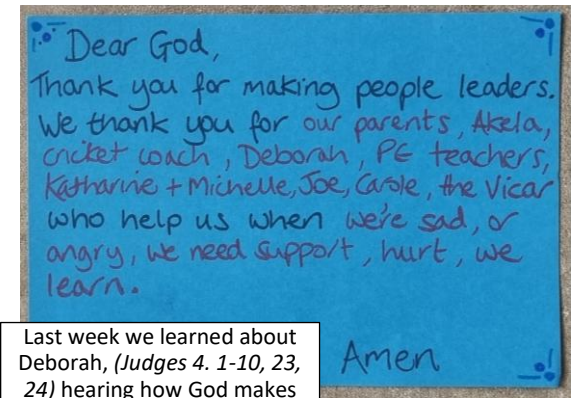 Dear God,
Thank you for making people leaders.
We thank you for our parents, Akela,
cricket coach, Deborah, PE teachers,
Katharine + Michelle, Joe, Carole, the Vicar
who help us when we're sad, or
angry, we need support, hurt, we
learn.
Amen
Last week we learned about
Deborah, (Judges 4. 1-10, 23,
24) hearing how God makes